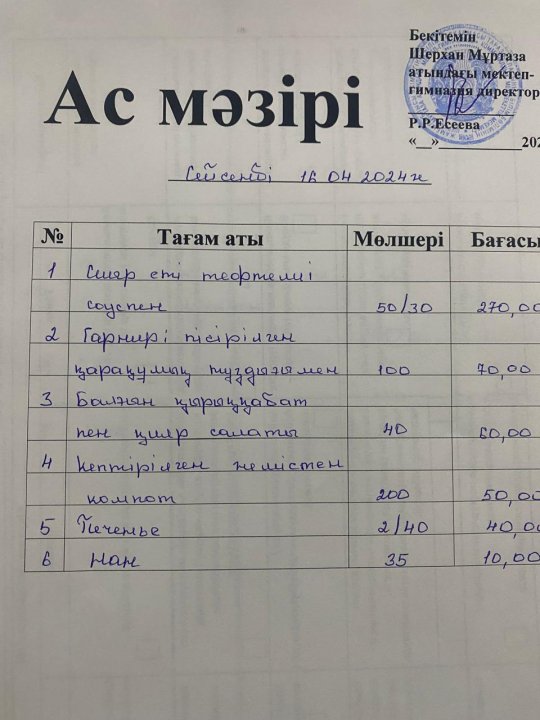 Бекітемін
Шерхан Мұртаза
атындағы мектеп-
гимназия директор
Р.Р.Есеева
«__»____________202
Ас мәзірі
Сейсенбі 16 04 2024ж
№ Тағам аты Мөлшері Бағасы
1 Сиыр еті тефтелиі
соуспен 50/30 270,00
2 Гарнирі пісірілген
қарақұмық тұздығымен 100 70,00
3 Балғын қырыққабат
пен қияр салаты 40 60,00
4 Кептірілген жемістен
компот 200 50,00
5 Печенье 2/40 40,00
6 Нан 35 10,00